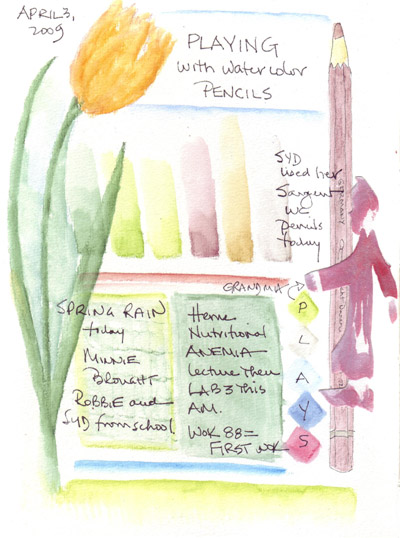 APRIL 3,
2009
PLAYING
with watercolor
PENCILS
SYD
used her
Sargent
WC
Pencils
today
GRANDMA
P
L
A
Y
S
SPRING RAIN
today
MINNIE
BROUGHT
ROBBIE and
SYD from school
Heme
Nutritional
ANEMIA
Lecture then
LAB 3 this
A.M.
WOK 88 =
FIRST WOK